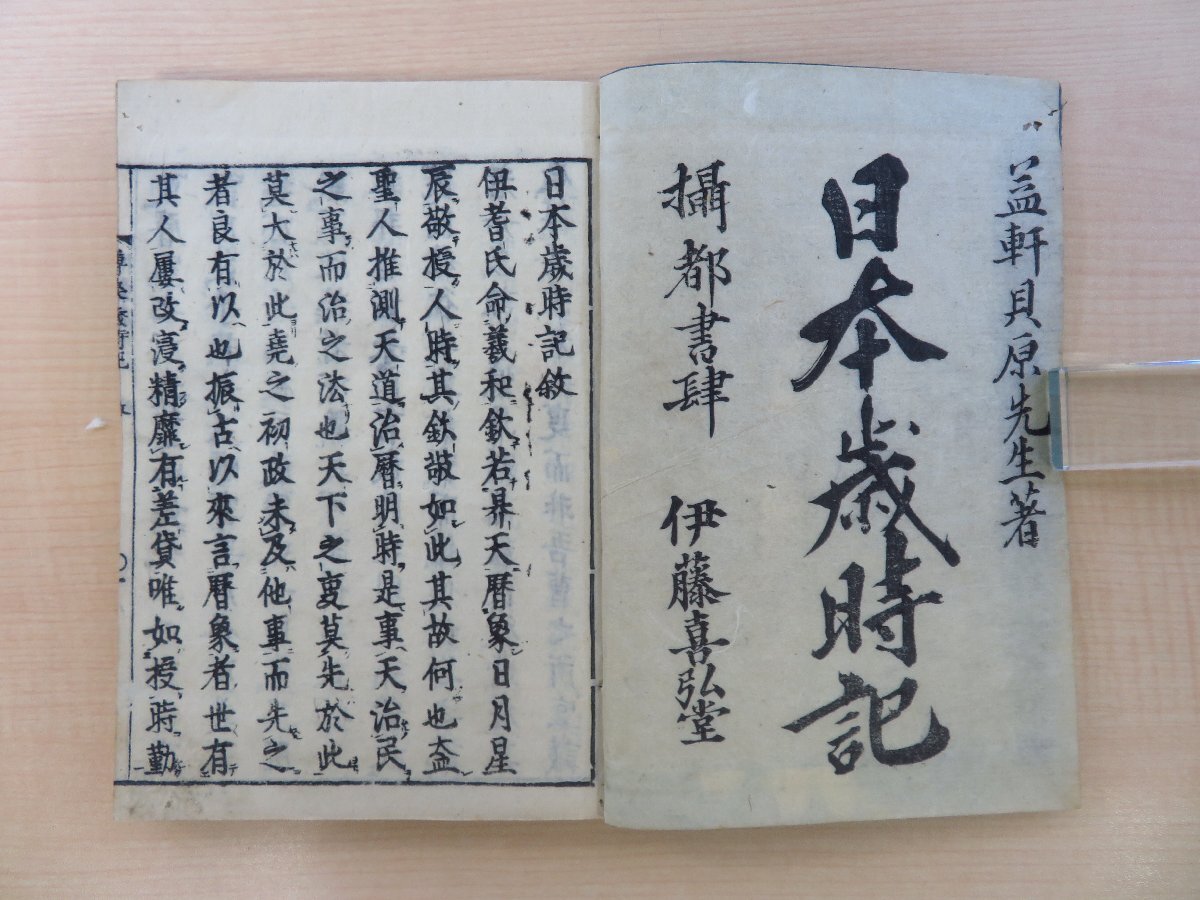 益軒貝原先生著
日本歳時記
攝都書肆 伊藤喜弘堂
日本歳時記敘
伊耆氏命羲和欽若昇天曆象日月星
辰敬授人時其欽敬如此其故何也蓋
聖人推測天道治曆明時是事天治民
之事而治之法也天下之事莫先於此
莫大於此堯之初政未及他事而先之
者良有以也振古以來言曆象者世有
其人屢改寖精靡有差貸唯如授時勤